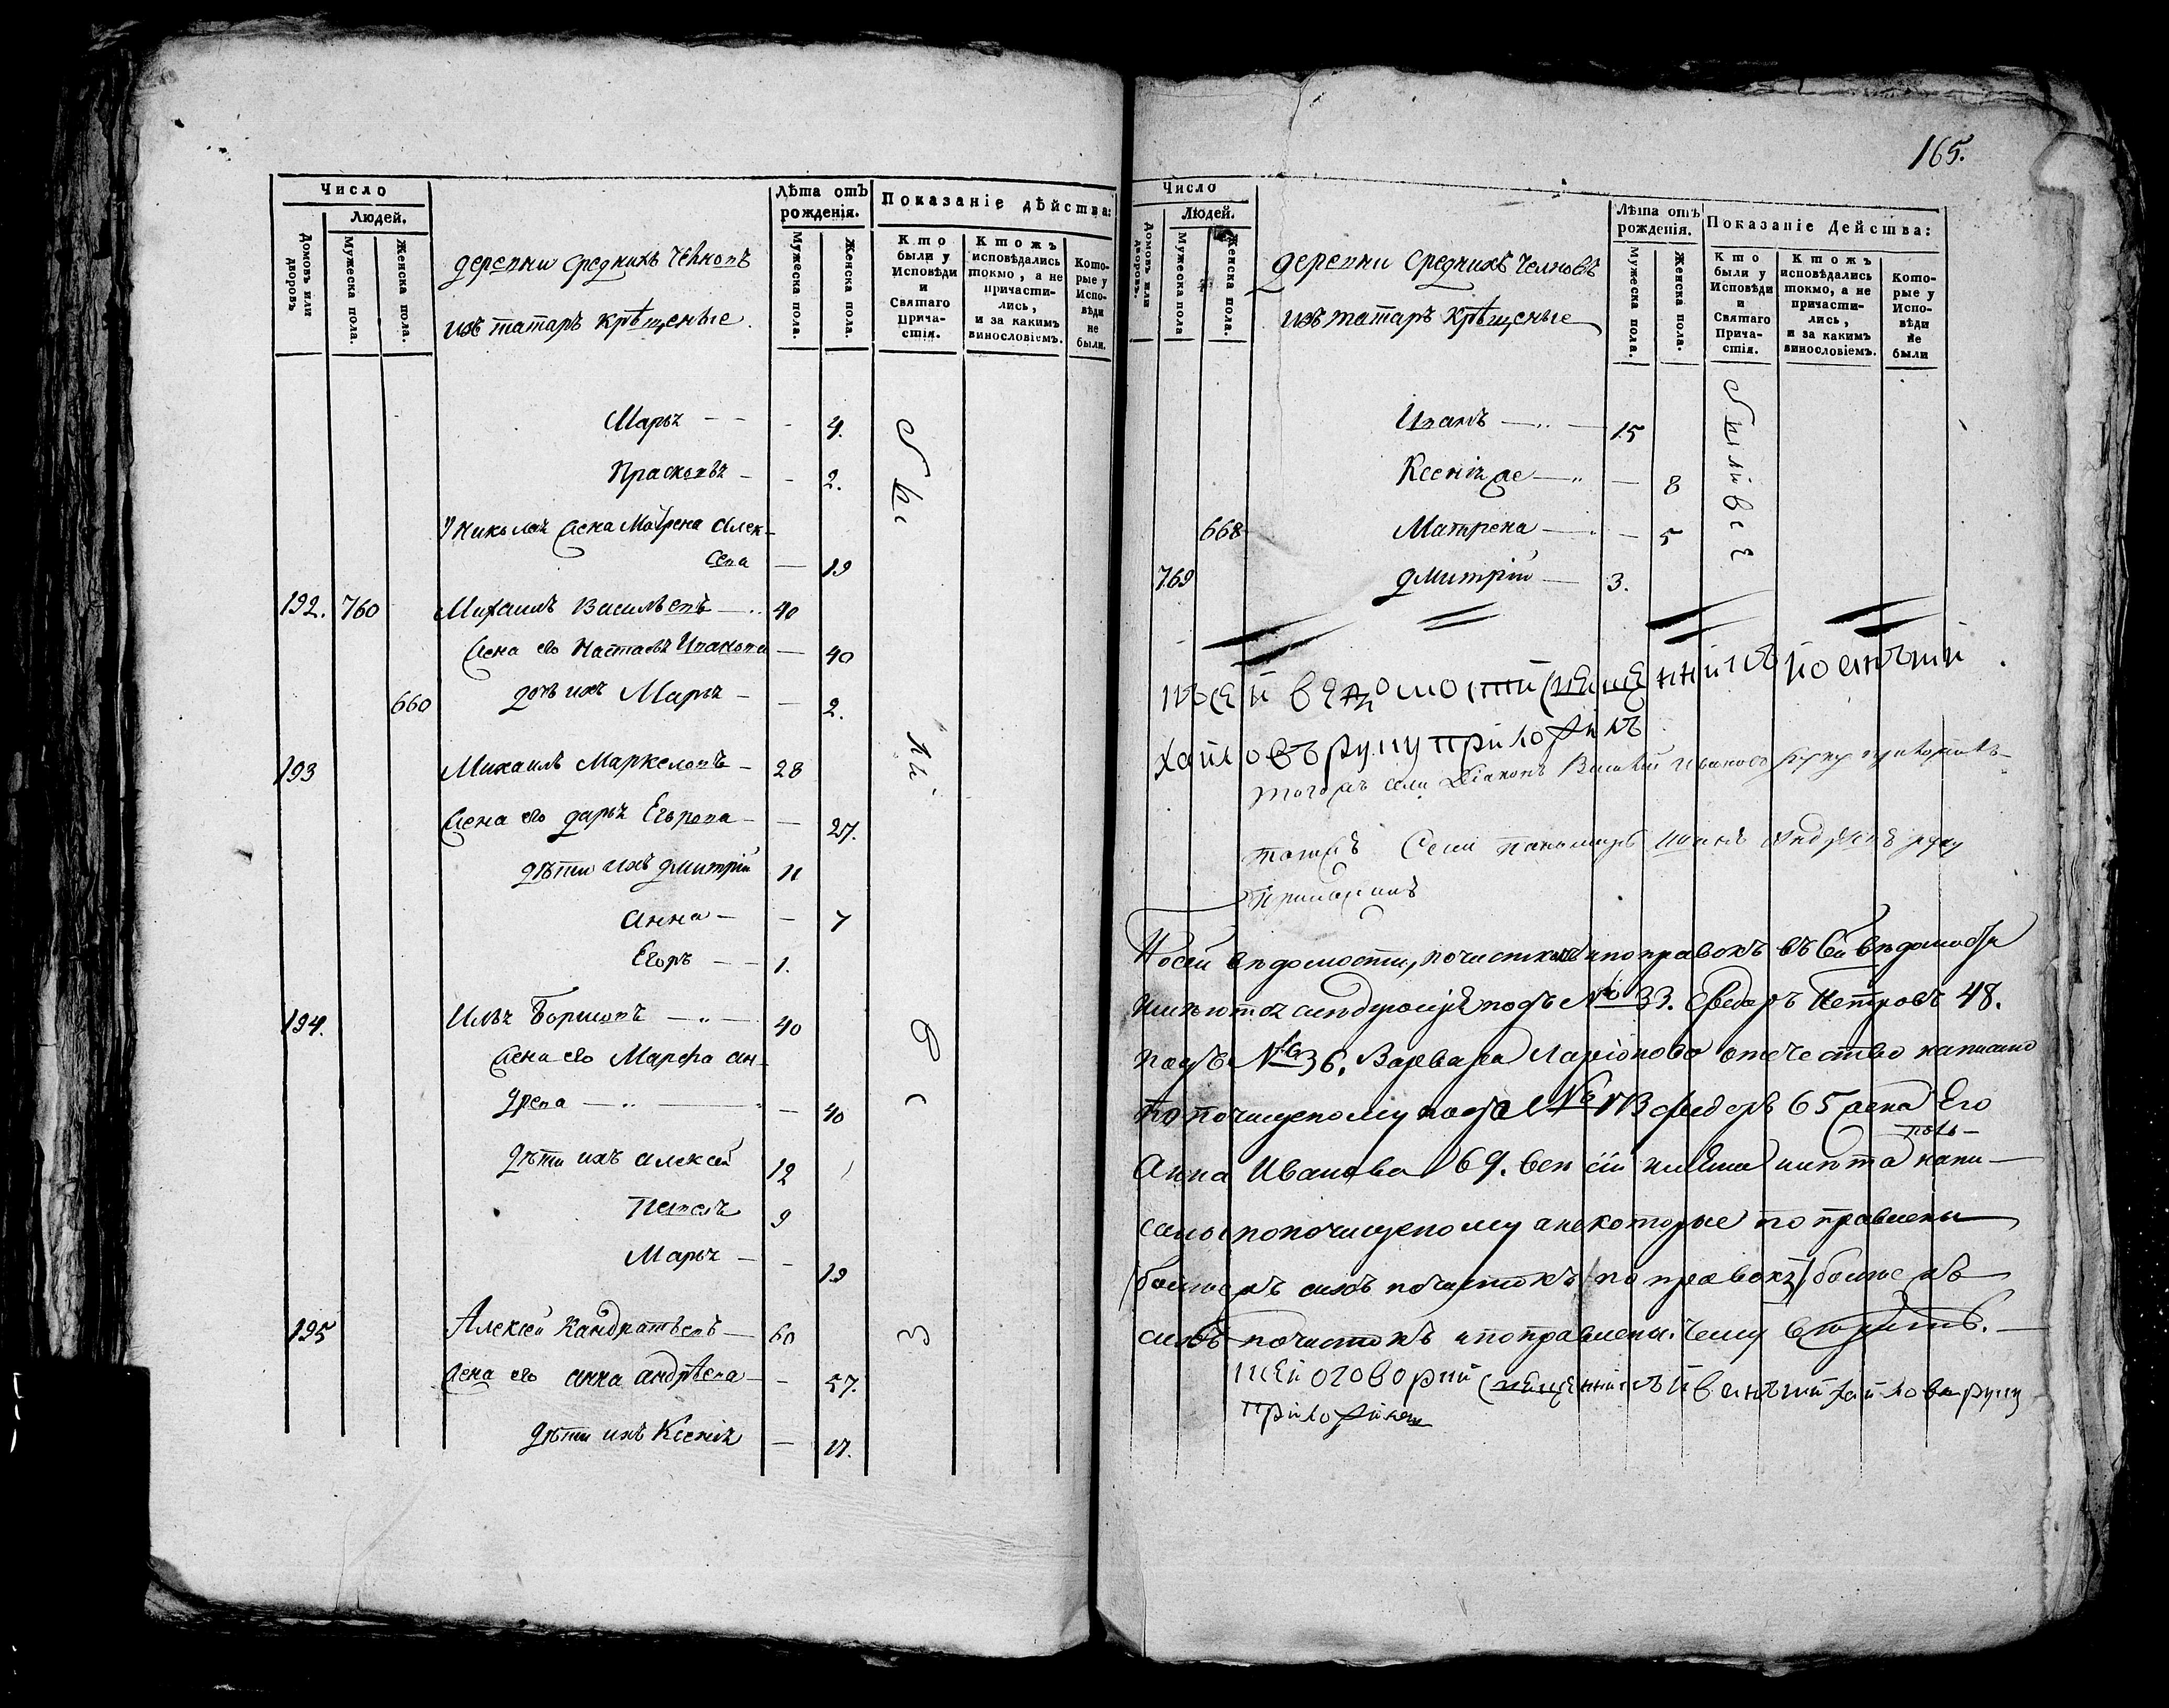 Число
Людей.
Домовъ или дворовъ
Мужеска пола.
Женска пола.
деревни Среднихъ Челновъ
изъ татаръ крѣщеные.
Лѣта отъ
рожденія.
Мужеска пола.
Женска пола.
Показаніе дѣйства:
Кто
были у
Исповѣди
и
Святаго
Прича-
стія.
Ктожъ
исповѣдались
токмо, а не
причасти-
лись,
и за какимъ
винословіемъ.
Кото-
рые у
Испо-
вѣди
не
были.
Марья - - - 4.
Прасковья - - 2.
У Николая жена Матрена Алек-
сева — 19
192. 760 Михаилъ Васильевъ — 40
жена его Настасья Иванова — 40
660 дочь ихъ Марья — 2.
193 Михаилъ Маркеловъ — 28
жена его дарья Егорова — 27.
дѣти ихъ дмитрій 11
анна — 7
Егоръ — 1.
194. Илья Борисовъ — 40
жена его Марфа ан-
древа — 40
дѣти ихъ алексей 12
Павелъ 9
Марья — 19
195 Алексей Кандратьевъ — 60
жена его анна андрѣева — 57.
дѣти ихъ Ксенія — 17.
165.
Число
Людей.
Домовъ или дворовъ.
Мужеска пола
Женска пола.
деревни Среднихъ Челновъ
изъ татаръ крѣщеные
Лѣта отъ
рожденія.
Мужеска пола.
Женска пола.
Показаніе Дейсшва:
Кто
были у
Исповѣди
и
Святаго
Прича-
стія.
Ктожъ
исповѣдались
токмо, а не
причасти-
лись,
и за какимъ
винословіемъ.
Кото-
рые у
Испо-
вѣди
не
были
Иванъ — 15
Ксенія же — 8
668 Матрена — 5
769 дмитрій — 3.
ксей ведомости священникъ иоаннъ ми
хайловъ руку приложилъ
тогожъ села Діаконъ Василий Ивановъ руку приложилъ
тогожъ Села пономарь руку
приложилъ
По сей вѣдомости, почистки и поправокъ въ сей вѣдомости
имѣются подъ № 33. Федоръ Петровъ 48.
подъ № 36. Варвара Ларіонова отечество написано
по почищеному подъ № Федоръ 65 жена Его
Анна Иванова 69. всѣ сіи имена и лѣта напи-
саны по почищеному а некоторые поправлены
более сихъ почистокъ и поправокъ
сихъ почистокъ и поправлены. чему
ксей оговорки священникъ иваннъ михайловъ руку
приложилъ